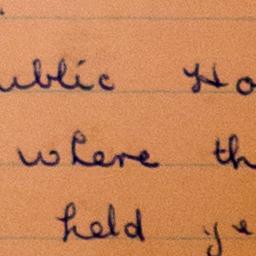 ublic Ho
where th
held ye